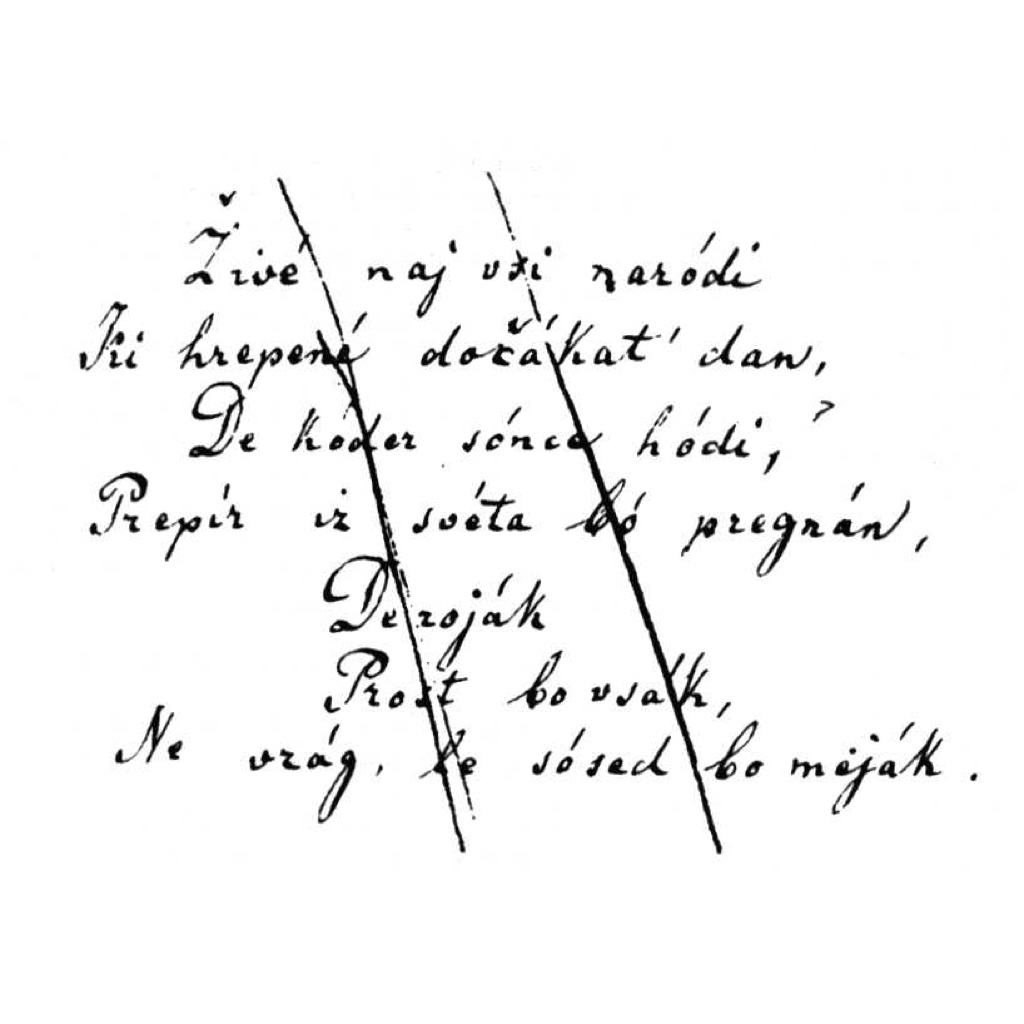 Živé naj vsi naródi
Ki hrepené dočákat' dan,
De kóder sónce hódi,
Prepír iz svéta bó pregnán,
De roják
Prost bo vsák,
Ne vrág, le sósed bo mèják.